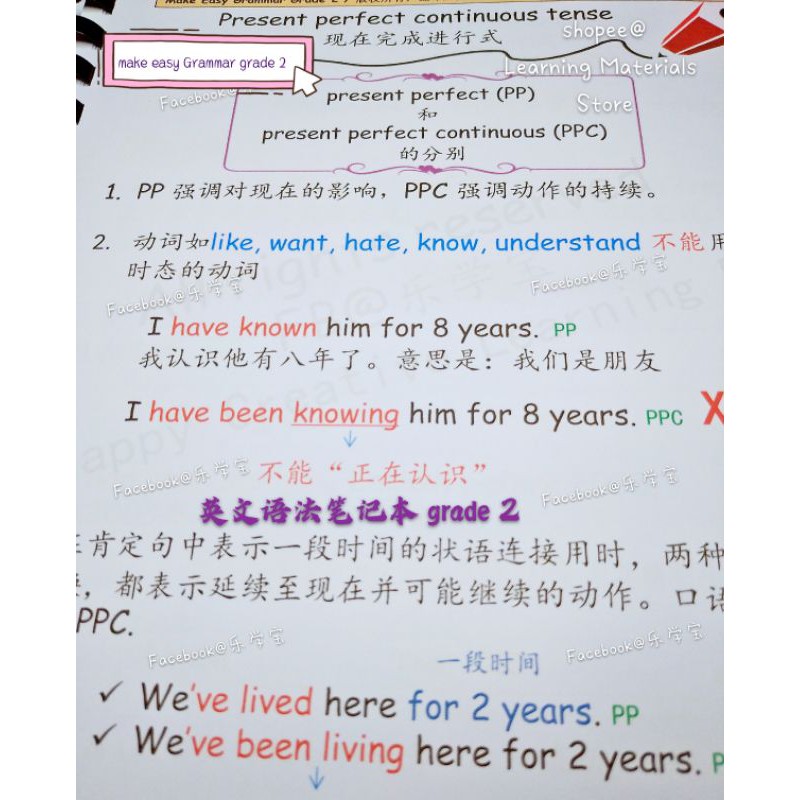 Present perfect continuous tense
现在完成进行式
shopee@
Learning Materials
Store
make easy Grammar grade 2
present perfect (PP)
和
present perfect continuous (PPC)
的分别
1. PP 强调对现在的影响，PPC 强调动作的持续。
2. 动词如like, want, hate, know, understand 不能用
时态的动词
Facebook@乐学宝
Facebook@乐学宝
I have known him for 8 years. PP
我认识他有八年了。意思是：我们是朋友
I have been knowing him for 8 years. PPC X
不能“正在认识”
Facebook@乐学宝
Facebook@乐学宝
英文语法笔记本 grade 2
肯定句中表示一段时间的状语连接用时，两种
，都表示延续至现在并可能继续的动作。口语
PPC.
Facebook@乐学宝
Facebook@乐学宝
一段时间
✓ We've lived here for 2 years. PP
✓ We've been living here for 2 years. P